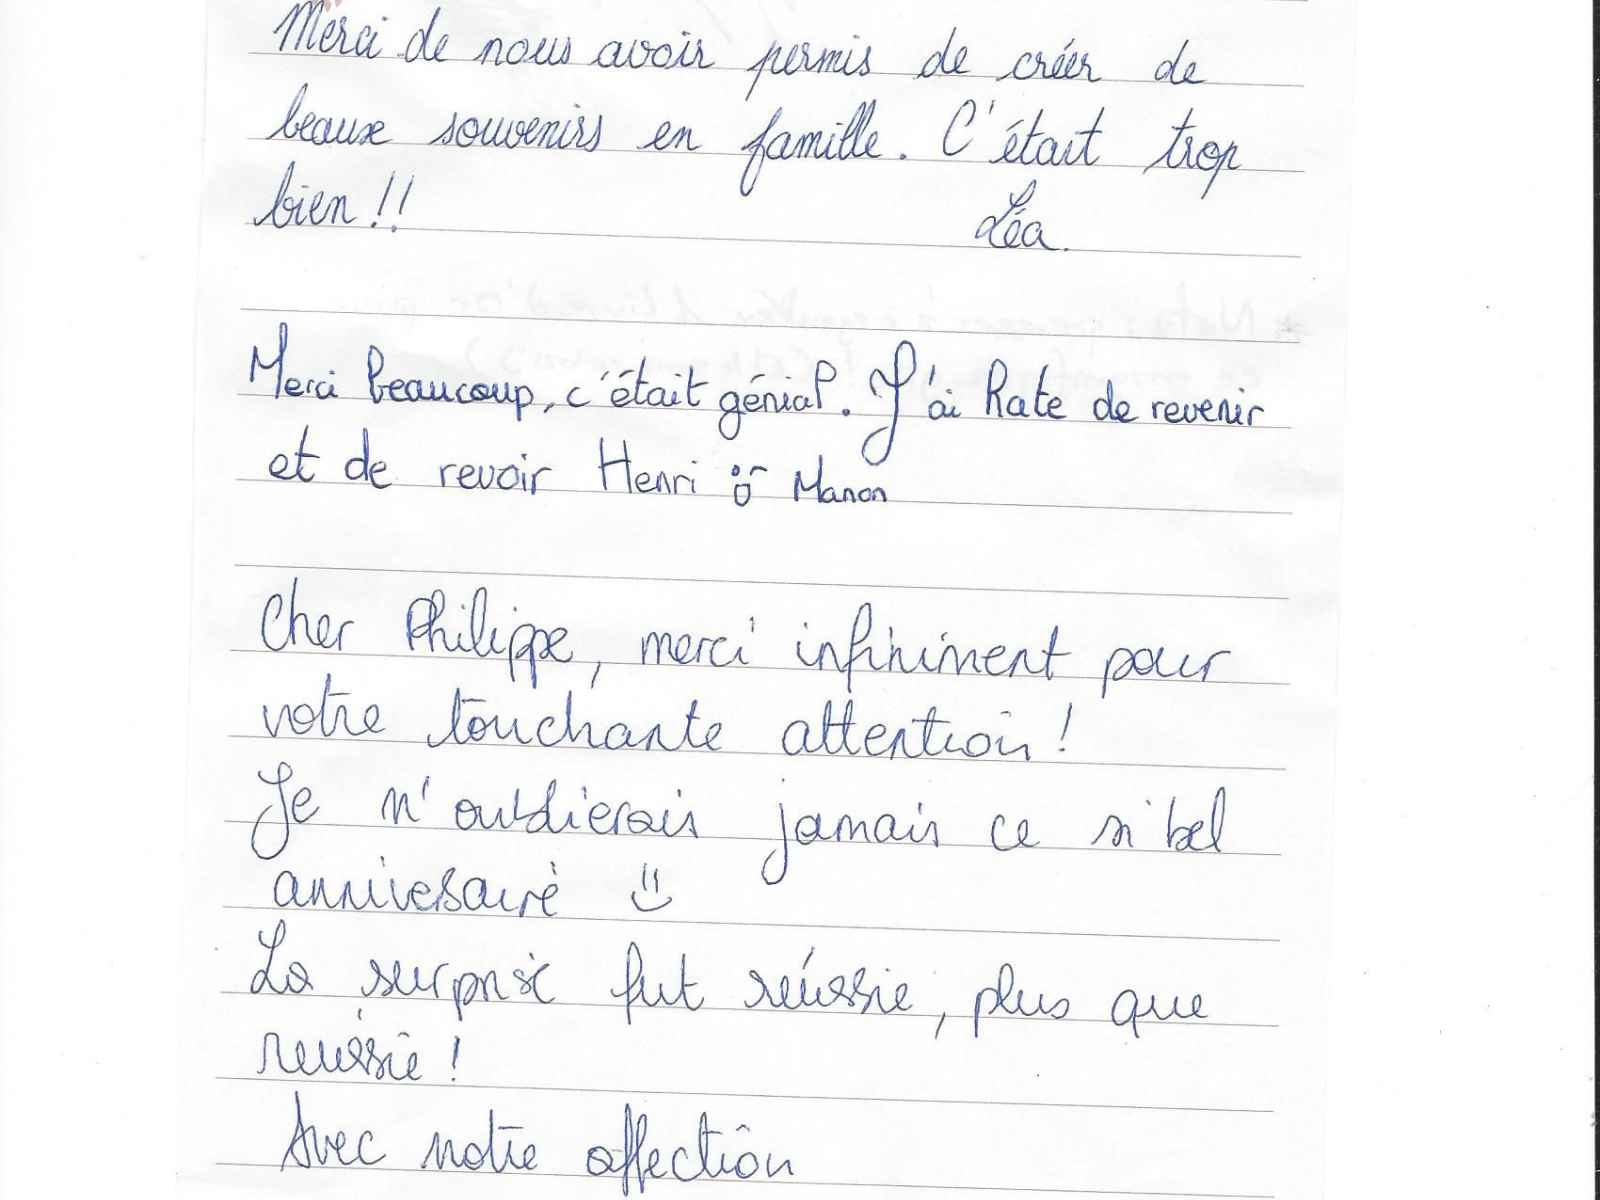 Merci de nous avoir permis de créer de
beaux souvenirs en famille. C'était trop
bien !!
Léa.
Merci beaucoup, c'était génial. J'ai hate de revenir
et de revoir Henri
Manon
Cher Philippe, merci infiniment pour
votre touchante attention !
Je n'oublierais jamais ce si bel
anniversaire
La surprise fut réussie, plus que
réussie !
Avec notre affection